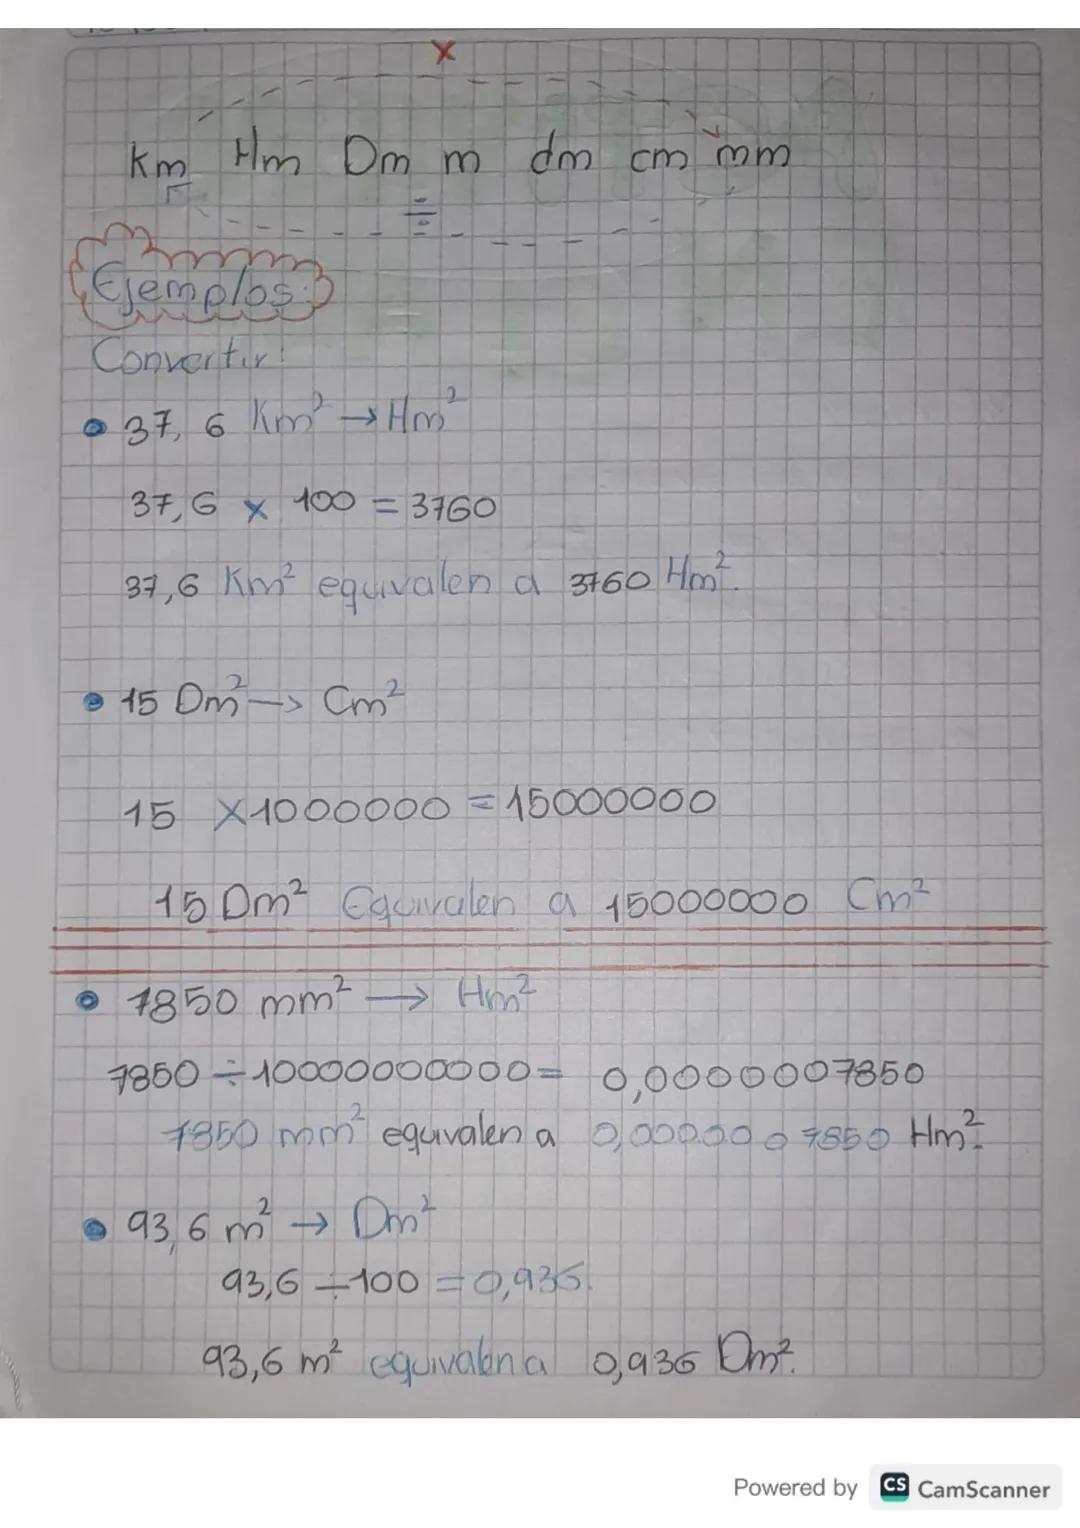 x
Km Hm Dm m dm cm mm
÷
Ejemplos:
Convertir:
• 37,6 Km² → Hm²
37,6 x 100 = 3760
37,6 Km² equivalen a 3760 Hm².
• 15 Dm² → Cm²
15 x 1000000 = 15000000
15 Dm² Equivalen a 15000000 Cm²
• 7850 mm² → Hm²
7850 ÷ 10000000000 = 0,0000007850
7850 mm² equivalen a 0,0000007850 Hm².
• 93,6 m² → Dm²
93,6 ÷ 100 = 0,936.
93,6 m² equivalen a 0,936 Dm².
Powered by CS CamScanner